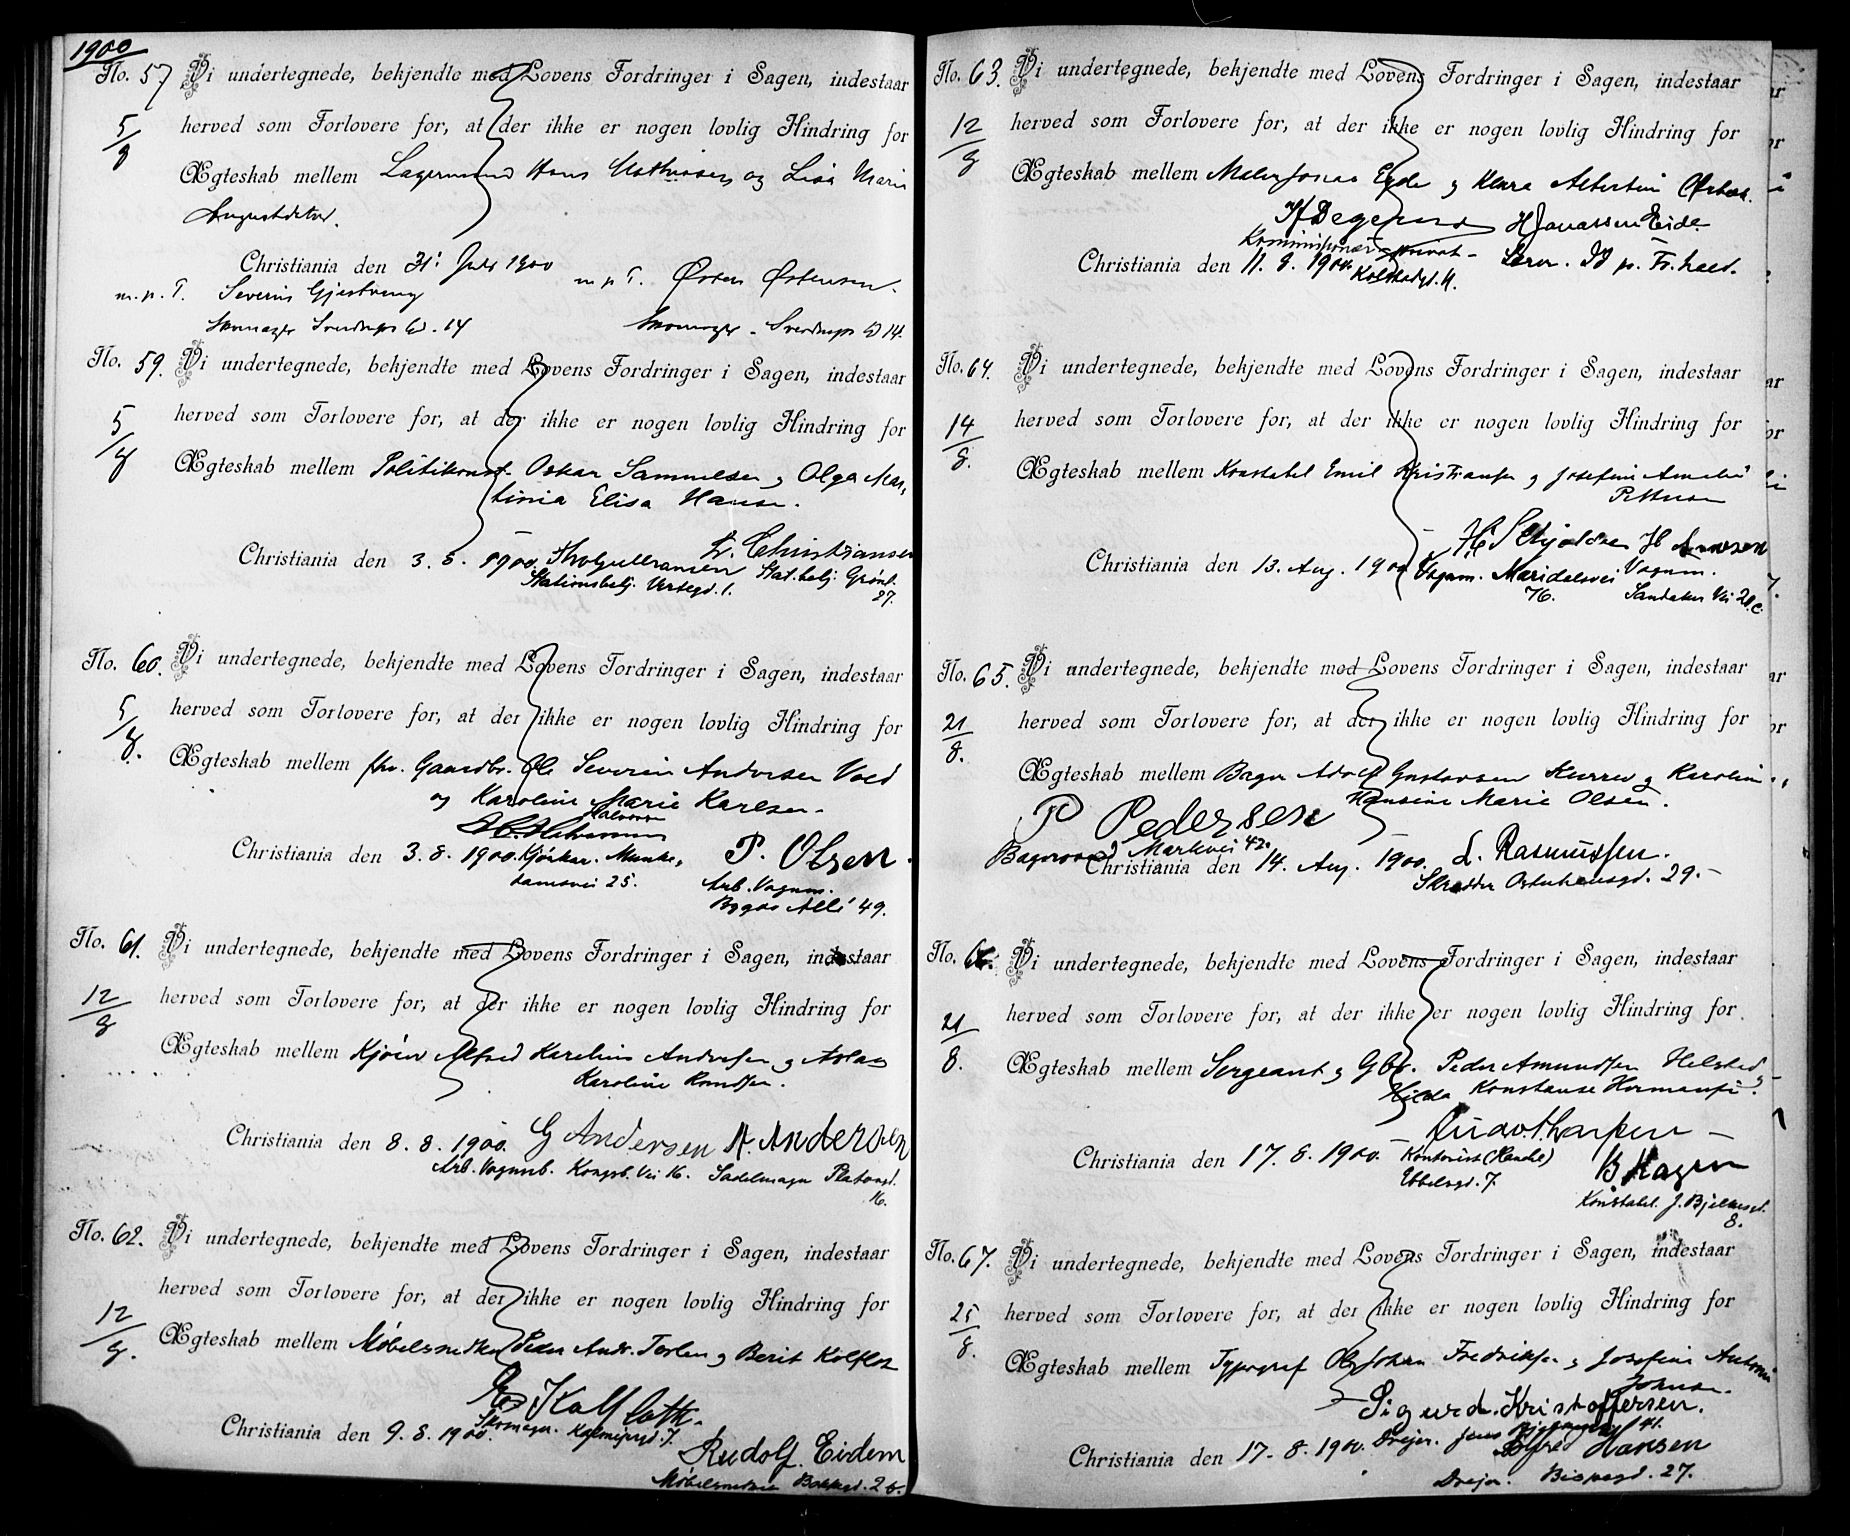 1900
No. 57 Vi undertegnede, bekjendte med Lovens Fordringer i Sagen, indestaar
5/8 herved som Forlovere for, at der ikke er nogen lovlig Hindring for
Ægteskab mellem Lagermand Hans Mathisen og Lisa Marie
Augustdatter.
Christiania den 31' Juli 1900
m. p. T. Severin Gjestvang m p T. Østen Østensen.
Skomager Sverdrups G. 14 Skomager. Sverdrups G 14.
No. 59. Vi undertegnede, bekjendte med Lovens Fordringer i Sagen, indestaar
5/8 herved som Forlovere for, at der ikke er nogen lovlig Hindring for
Ægteskab mellem Politikonst. Oskar Samuelsen og Olga Mar-
tinia Elisa Hansen.
Christiania den 3. 8. 1900. Thv. Gulbransen Chr. Christiansen
Stationsbetj. Vertsgd. 1. Stat.betj. Grønl.
27.
No. 60. Vi undertegnede, bekjendte med Lovens Fordringer i Sagen, indestaar
5/8. herved som Forlovere for, at der ikke er nogen lovlig Hindring for
Ægteskab mellem fhv. Gaardbr. Ole Severin Andersen Vold
og Karoline Marie Karlsen.
Halvorsen
Christiania den 3. 8. 1900. Kjørkar. Munke- P. Olsen.
damsvei 25. Arb. Vognm.
Bygdø Allé 49.
No. 61. Vi undertegnede, bekjendte med Lovens Fordringer i Sagen, indestaar
12/8 herved som Forlovere for, at der ikke er nogen lovlig Hindring for
Ægteskab mellem Alfred Karelius Andersen og
Karoline Knudsen.
Christiania den 8. 8. 1900. G Andersen A. Andersen
Arb. Vognmb. Kongsb. Vei 16. Sadelmager Platousgd.
16.
No. 62. Vi undertegnede, bekjendte med Lovens Fordringer i Sagen, indestaar
12/8. herved som Forlovere for, at der ikke er nogen lovlig Hindring for
Ægteskab mellem Møbelsnedker Peder Andr. Torlen og Berit Kolflot
Kolfloth.
Christiania den 9. 8. 1900. Skomager. 7.
Rudolf Eidem
Møbelsnedker Bakkegd. 26.
No. 63. Vi undertegnede, bekjendte med Lovens Fordringer i Sagen, indestaar
12/8 herved som Forlovere for, at der ikke er nogen lovlig Hindring for
Ægteskab mellem Maler Jonas Eyde og Klara Albertine
H. Jonassen Eide
Kommissionær privat
Christiania den 11. 8. 1900.
No. 64. Vi undertegnede, bekjendte med Lovens Fordringer i Sagen, indestaar
14/8. herved som Forlovere for, at der ikke er nogen lovlig Hindring for
Ægteskab mellem Konstabel Emil Kristiansen og Josefine Amalie
Petterson
H. Skjoldsen H Arnesen
Christiania den 13. Aug. 1900 Vognm. Maridalsvei Vognm.
76. Sandaker Vei 20.c.
No. 65. Vi undertegnede, bekjendte med Lovens Fordringer i Sagen, indestaar
21/8. herved som Forlovere for, at der ikke er nogen lovlig Hindring for
Ægteskab mellem Bager Adolf Gustavsen og Karoline
Hansine Marie Olsen.
P Pedersen
Markvei 42.
Christiania den 14. Aug. 1900. L. Rasmussen.
Skredder Osterhausgd. 29.
No. 66. Vi undertegnede, bekjendte med Lovens Fordringer i Sagen, indestaar
21/8. herved som Forlovere for, at der ikke er nogen lovlig Hindring for
Ægteskab mellem Sergeant og Gbr. Peder Amundsen Helstad og
Hilda Konstanse Hermansen.
Christiania den 17. 8. 1900. Kontorist (Handel) B Hagen
Ebbelsgd. 7. Konstabel J. Bjelkesgd.
8.
No. 67. Vi undertegnede, bekjendte med Lovens Fordringer i Sagen, indestaar
25/8. herved som Forlovere for, at der ikke er nogen lovlig Hindring for
Ægteskab mellem Typograf Ole Johan Fredriksen og Josefine Antonie
Johnsen.
Sigurd. Kristoffersen.
Christiania den 17. 8. 1900. Drejer. Jens Bjelkesgd. 41.
Alfred Hansen
Drejer. Bispegd. 27.